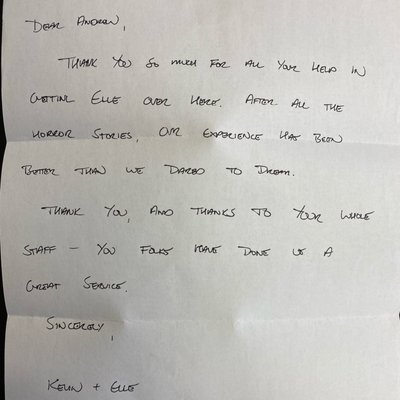 DEAR ANDREW,
THANK YOU SO MUCH FOR ALL YOUR HELP IN
GETTING ELLE OVER HERE. AFTER ALL THE
HORROR STORIES, OUR EXPERIENCE HAS BEEN
BETTER THAN WE DARED TO DREAM.
THANK YOU, AND THANKS TO YOUR WHOLE
STAFF – YOU FOLKS HAVE DONE US A
GREAT SERVICE.
SINCERELY,
KEVIN + ELLE